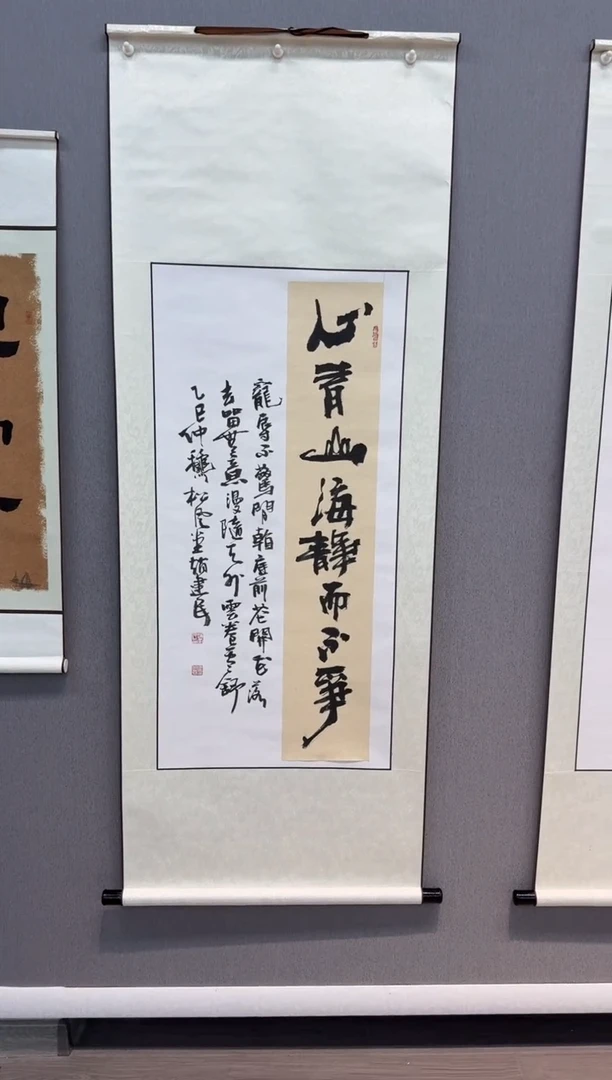 心有山海靜而不爭
寵辱不驚閒看庭前花開花落
去留無意漫隨天外雲卷雲舒
乙巳仲穐松風堂趙建民